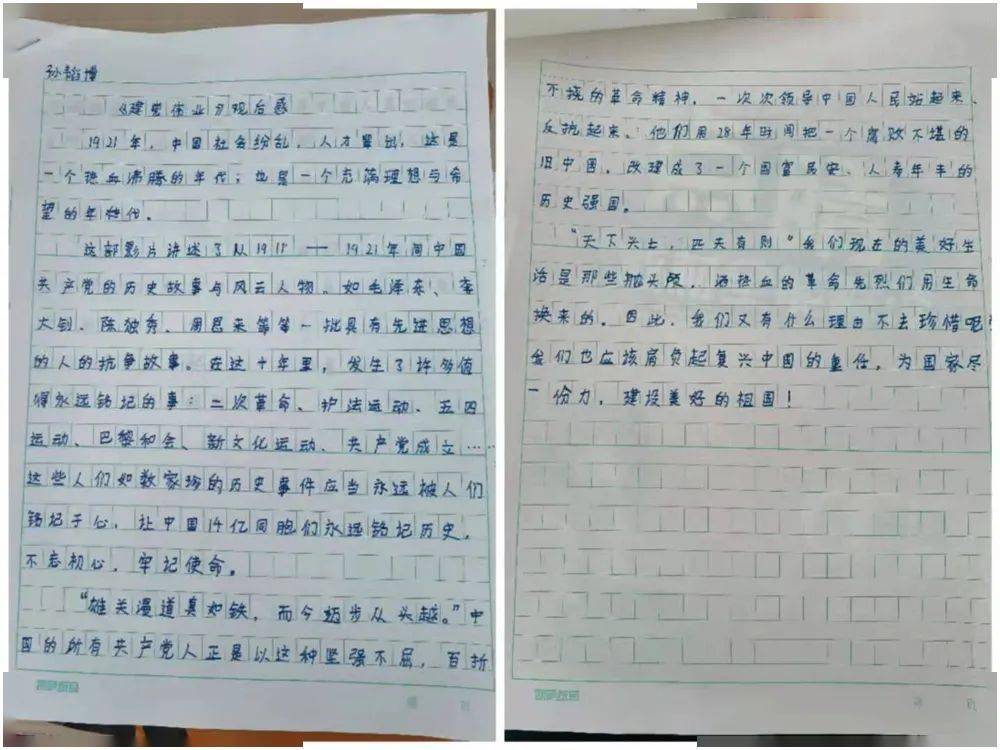 孙韬博
《建党伟业》观后感
1921年,中国社会纷乱,人才冒出,这是
一个热血沸腾的年代;也是一个充满理想与希
望的年代。
这部影片讲述了从1911——1921年间中国
共产党的历史故事与风云人物。如毛泽东、李
大钊、陈独秀、周恩来等等一批具有先进思想
的人的抗争故事。在这十年里,发生了许多值
得永远铭记的事:二次革命、护法运动、五四
运动、巴黎和会、新文化运动、共产党成立……
这些人们如数家珍的历史事件应当永远被人们
铭记于心,让中国14亿同胞们永远铭记历史,
不忘初心,牢记使命。
“雄关漫道真如铁,而今迈步从头越。”中
国的所有共产党人正是以这种坚强不屈,百折
不挠的革命精神,一次次领导中国人民站起来、
反抗起来。他们用28年时间把一个腐败不堪的
旧中国,改建成了一个国富民安、人寿年丰的
历史强国。
“天下兴亡,匹夫有则”我们现在的美好生
活是那些抛头颅,洒热血的革命先烈们用生命
换来的。因此,我们又有什么理由不去珍惜呢?
我们也应该肩负起复兴中国的重任,为国家尽
一份力,建设美好的祖国!